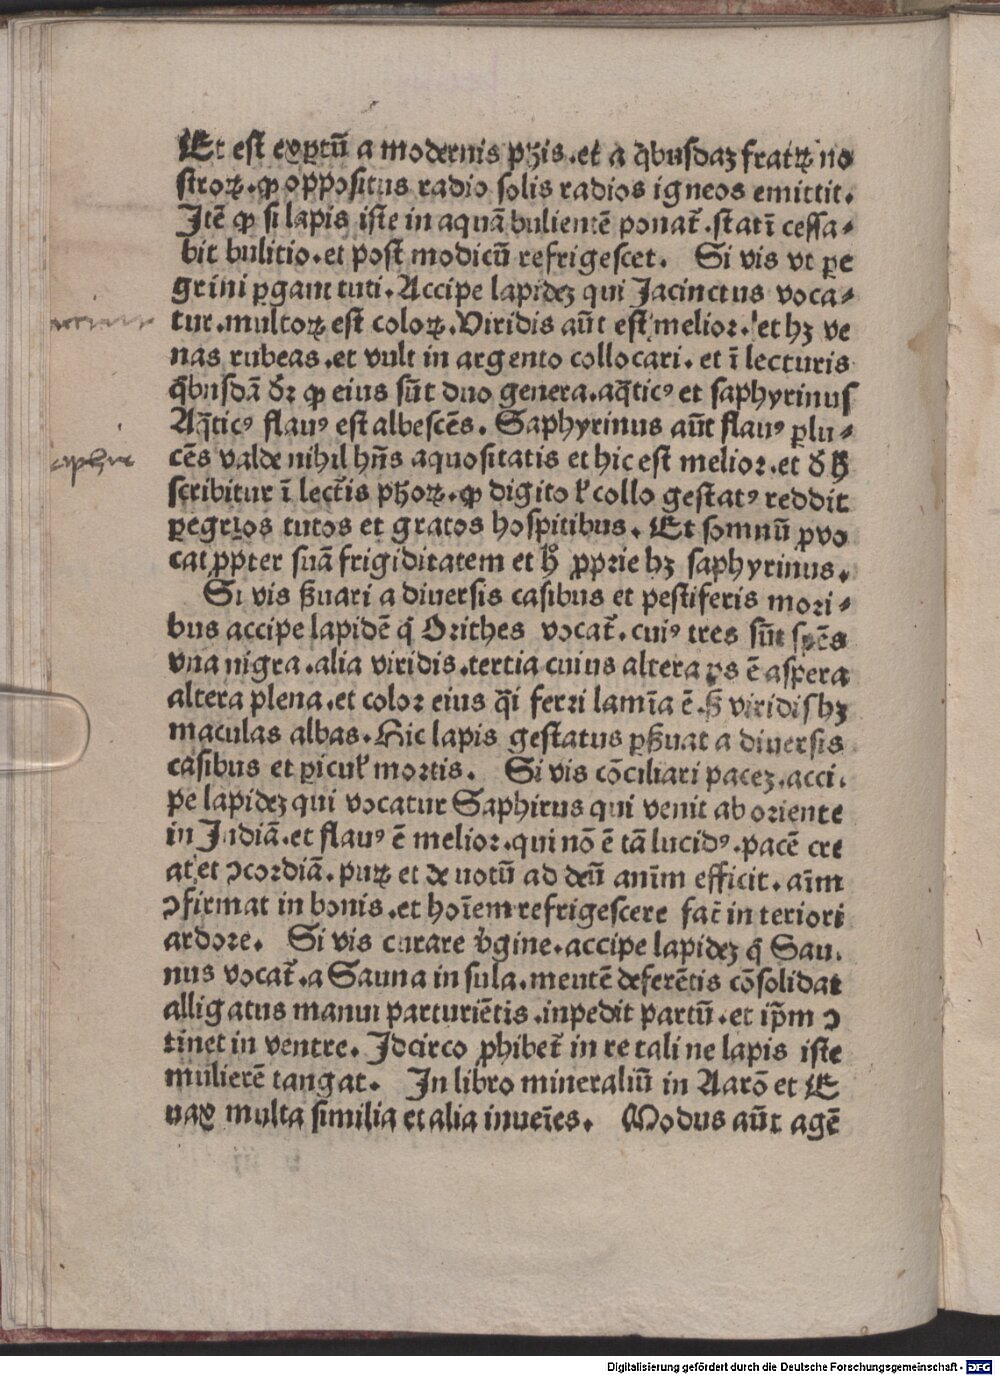 Et est exꝑtū a modernis pħis.et a qͥbusdaꝫ fratꝝ no
stroꝝ.ꝙ oppositus radio solis radios igneos emittit.
Itē ꝙ si lapis iste in aquā bulientē ponat᷑.statī cessa-
bit bulitio.et post modicū refrigescet. Si vis vt ꝑe
grini ꝑgant tuti.Accipe lapideꝫ qui Jacinctus voca-
tur.multoꝝ est coloꝝ.Viridis aūt est melior.et hꝫ ve
nas rubeas.et vult in argento collocari.et ī lecturis
qͥbusdā dr̄ ꝙ eius sūt duo genera.aqͣticꝰ et saphyrinus
Aqͣticꝰ flauꝰ est albescēs. Saphyrinus aūt flauꝰ ꝑlu-
cēs valde nihil hn̄s aquositatis et hic est melior.et đ ħ
scribitur ī lect̄is pħoꝝ.ꝙ digito ł collo gestatꝰ reddit
ꝑegrīos tutos et gratos hospitibus. Et somnū ꝓuo
cat ꝓpter suā frigiditatem et hͦ ꝓprie hꝫ saphyrinus.
Si vis ẜuari a diuersis casibus et pestiferis mori-
bus accipe lapidē q̄ Orithes vocat᷑.cuiꝰ tres sūt spēs
vna nigra.alia viridis.tertia cuius altera ꝑs ē aspera
altera plena.et color eius qͣi ferri lamīa ē.ẜ viridis hꝫ
maculas albas.Hic lapis gestatus ꝑẜuat a diuersis
casibus et ꝑicuł mortis. Si vis cōciliari paceꝫ.acci.
pe lapideꝫ qui vocatur Saphirus qui venit ab oriente
in Indiā.et flauꝰ ē melior.qui nō ē tā lucidꝰ.pacē cre
at et ꝯcordiā.puꝝ et de uotū ad deū anīm efficit.aīm
ꝯfirmat in bonis.et hoīem refrigescere fac̄ in teriori
ardore. Si vis curare vͥgine.accipe lapideꝫ q̄ Sau.
nus vocat᷑.a Sauna in sula.mentē deferētis cōsolidat
alligatus manui parturiētis.inpedit partū.et ip̄m ꝯ
tinet in ventre. Idcirco ꝓhibet᷑ in re tali ne lapis iste
mulierē tangat. In libro mineraliū in Aarō et E
uax multa similia et alia inueīes. Modus aūt agē
Digitalisierung gefördert durch die Deutsche Forschungsgemeinschaft - DFG